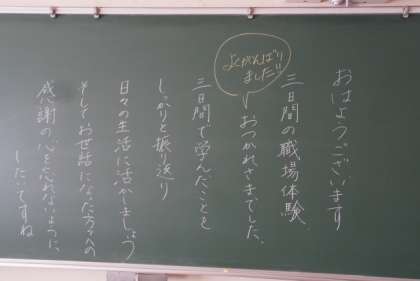 おはようございます
三日間の職場体験、
おつかれさまでした。
よくがんばり
ました!!
三日間で学んだことを
しっかりと振り返り
日々の生活に活かしましょう
そしてお世話になった方々への
感謝の心を忘れないように
したいですね